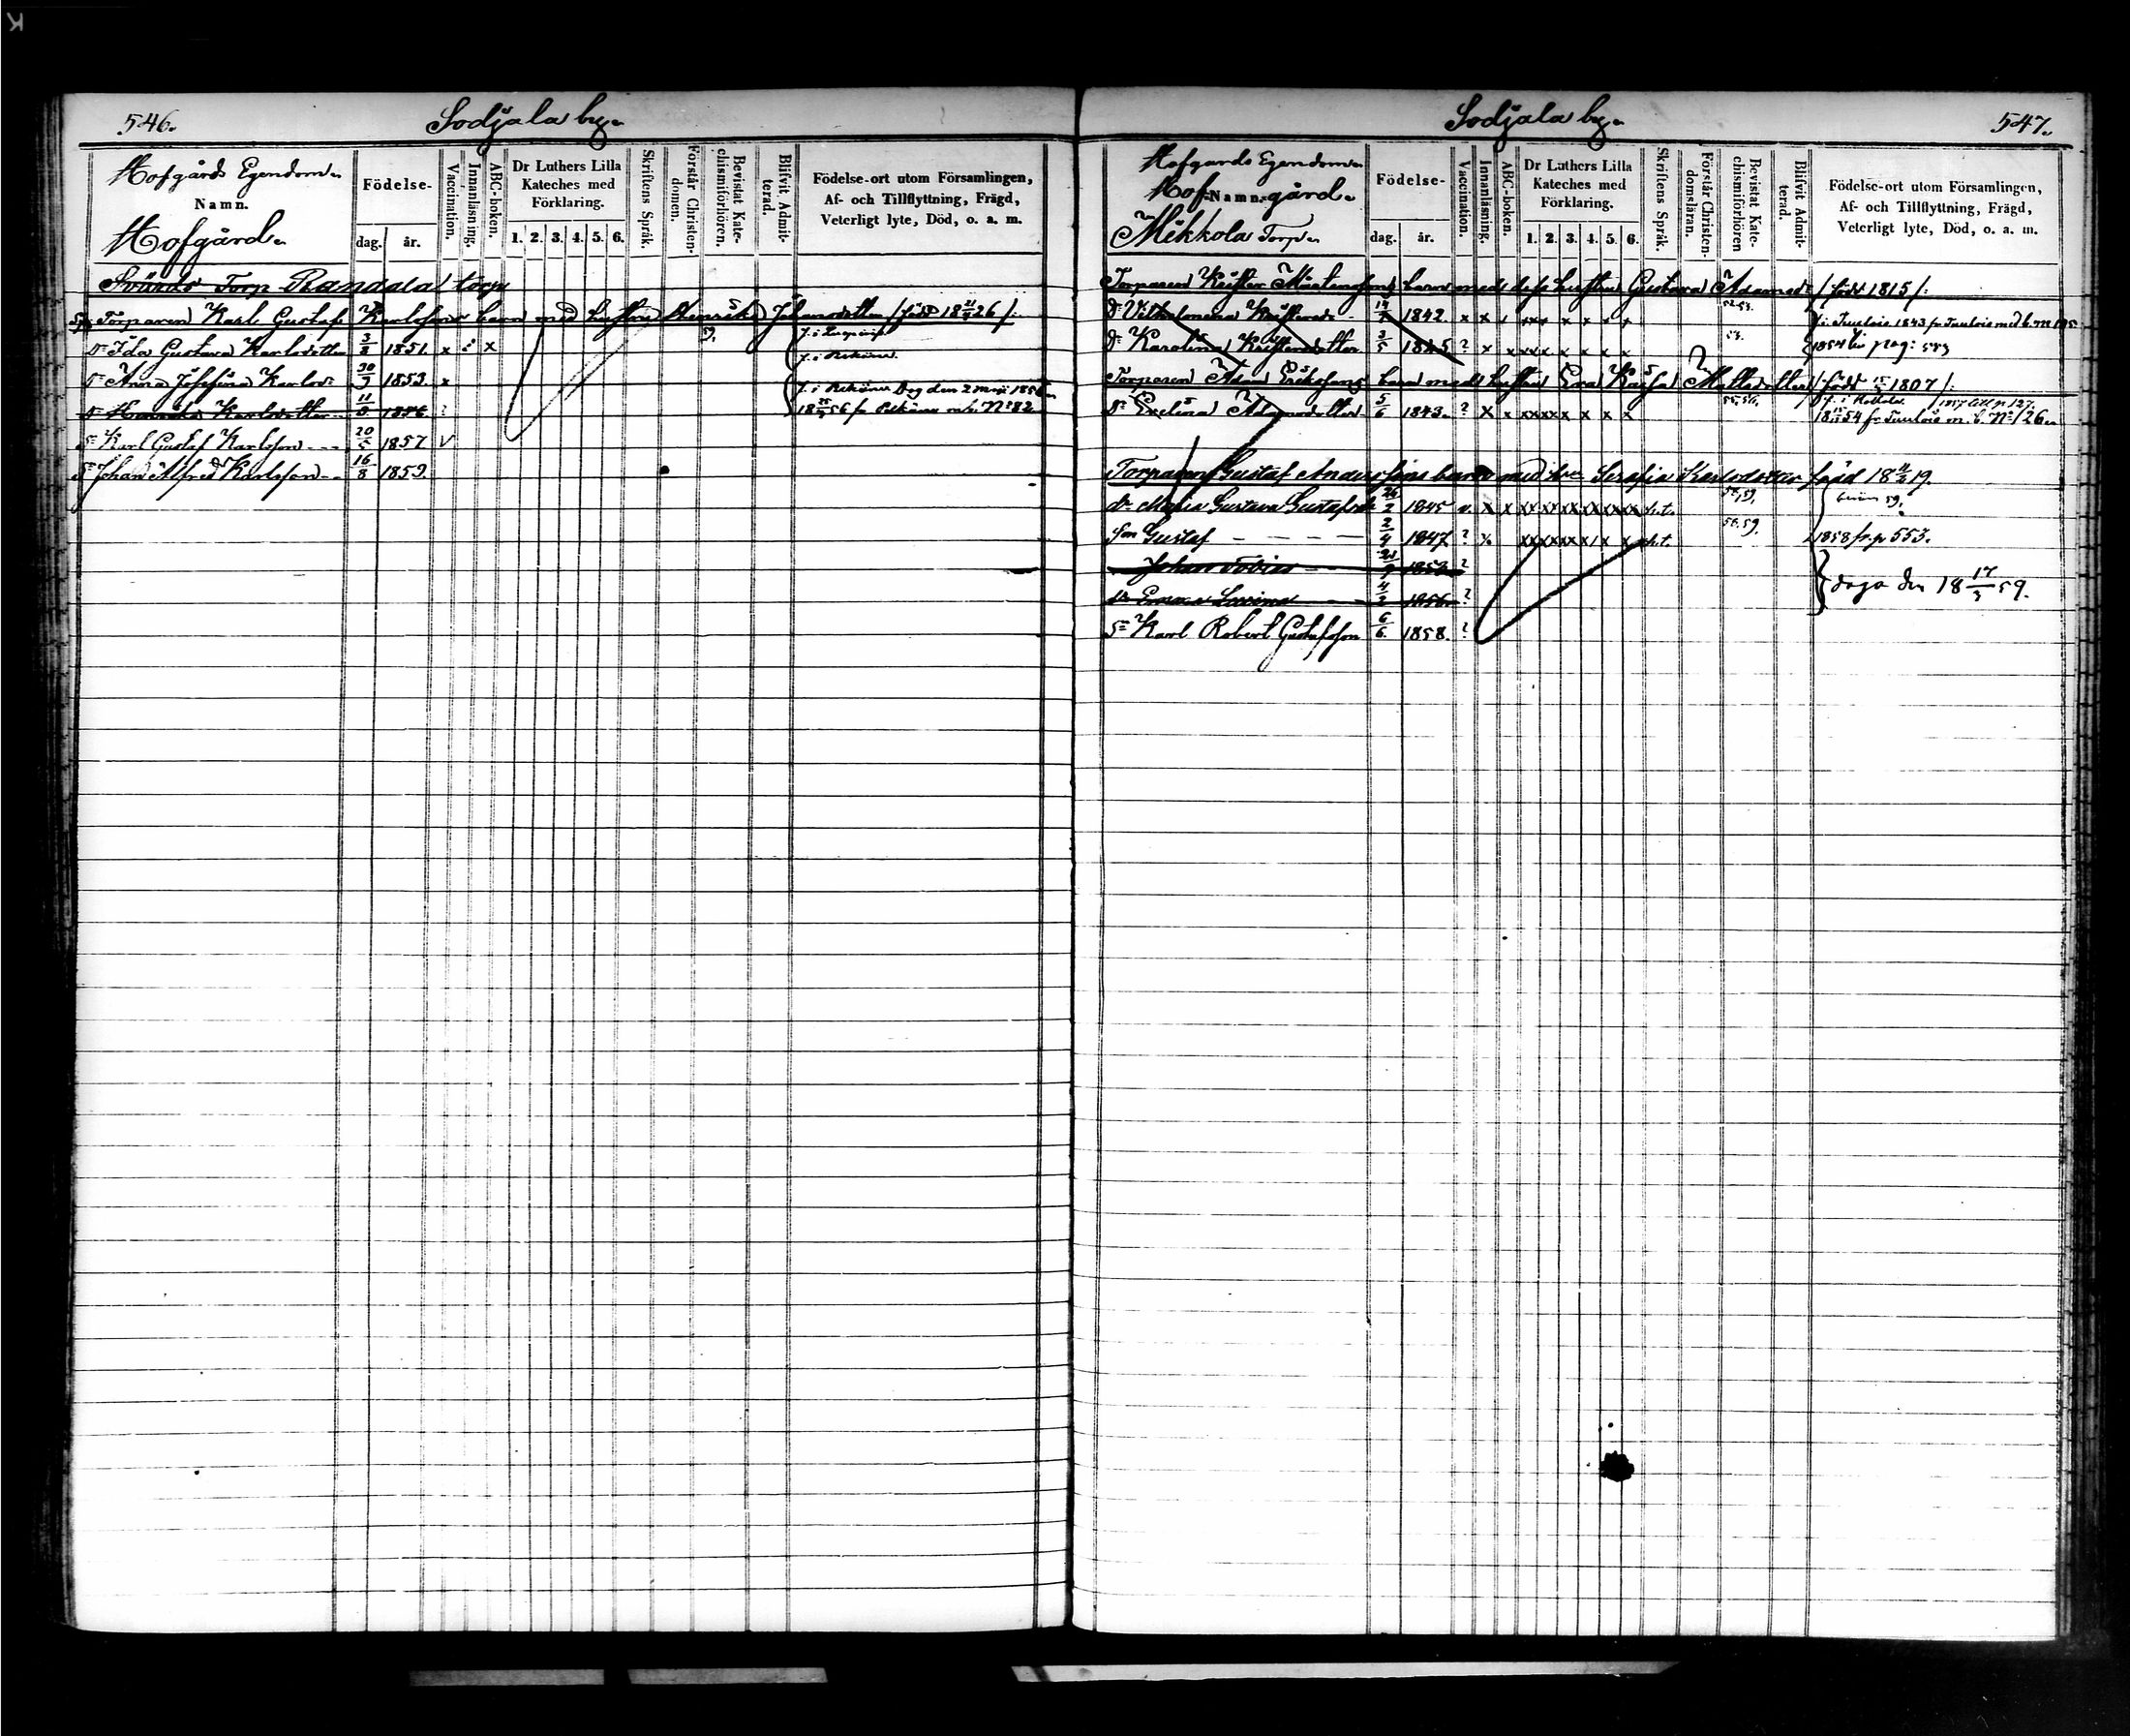 546.
Sodjala by.
Hofgårds Egendom.
Namn.
Hofgård.
Födelse-
dag. år.
Vaccination.
Innanläsning.
ABC-boken.
Dr Luthers Lilla
Kateches med
Förklaring.
1. 2. 3. 4. 5. 6.
Skriftens Språk.
Förstår Christen-
domen.
Bevistat Kate-
chismiförhören.
Blifvit Admit-
terad.
Födelse-ort utom Församlingen,
Af- och Tillflyttning, Frägd,
Veterligt lyte, Död, o. a. m.
Torp Randala torp
Torparen Karl Gustaf Karlssons barn med hustru Henrika Johansdotter /född 18 26/:
59.
Dr Ida Gustava Karlsdotter 3/8 1851. x x
Dr Anna Josefina Karlsd: 30/9 1853. x f. i
Dr Karlsdotter 11 1856 ? f. i Dog den 2 maji 1856
18 56 fr N:o 82
Sn Karl Gustaf Karlsson 20/5 1857 v
Sn Johan Alfred Karlsson 16/8 1859.
Sodjala by.
547.
Hofgårds Egendom.
Hofgård.
Namn.
Mikkola Torp.
Födelse-
dag. år.
Vaccination.
Innanläsning.
ABC-boken.
Dr Luthers Lilla
Kateches med
Förklaring.
1. 2. 3. 4. 5. 6.
Skriftens Språk.
Förstår Christen-
domsläran.
Bevistat Kate-
chismiförhören
Blifvit Admit-
terad.
Födelse-ort utom Församlingen,
Af- och Tillflyttning, Frägd,
Veterligt lyte, Död, o. a. m.
Torparen Krister Mårtenssons barn med dess hustru Gustava Adamsd: /född 1815/:
Dr Vilhelmina Kristersd: 1842 x x x xxx x x x x 52.53. f. i Tuulois 1843 fr Tuulois med b.
Dr Karolina Kristersdotter 3/5 1845 ? x x xxxx x x x x 53. 1854 till pag: 573
Torparen Adam Erikssons barn med hustru Eva Kajsa Mattsdotter /född 1807/:
Dr Evelina Adamsdotter 5/6 1843. ? x x xxxxx x x x x 55.56. 1857 p. 127.
18 54 fr Tuulois m. b. N:o 126.
Torparen Gustaf Anderssons barn med hu Serafia Karlsdotter född 18 11/2 19.
dr Maria Gustava Gustafsd: 26/2 1845 v. x x 58,59.
Son Gustaf 2/4 1847 ? x 58.59. 1858 fr. p 553.
Johan Tobias 1853 ?
dr Emma Lovina 4/2 1856 ? dogo den 18 17/3 59.
Sn Karl Robert Gustafsson 6/6 1858. ?